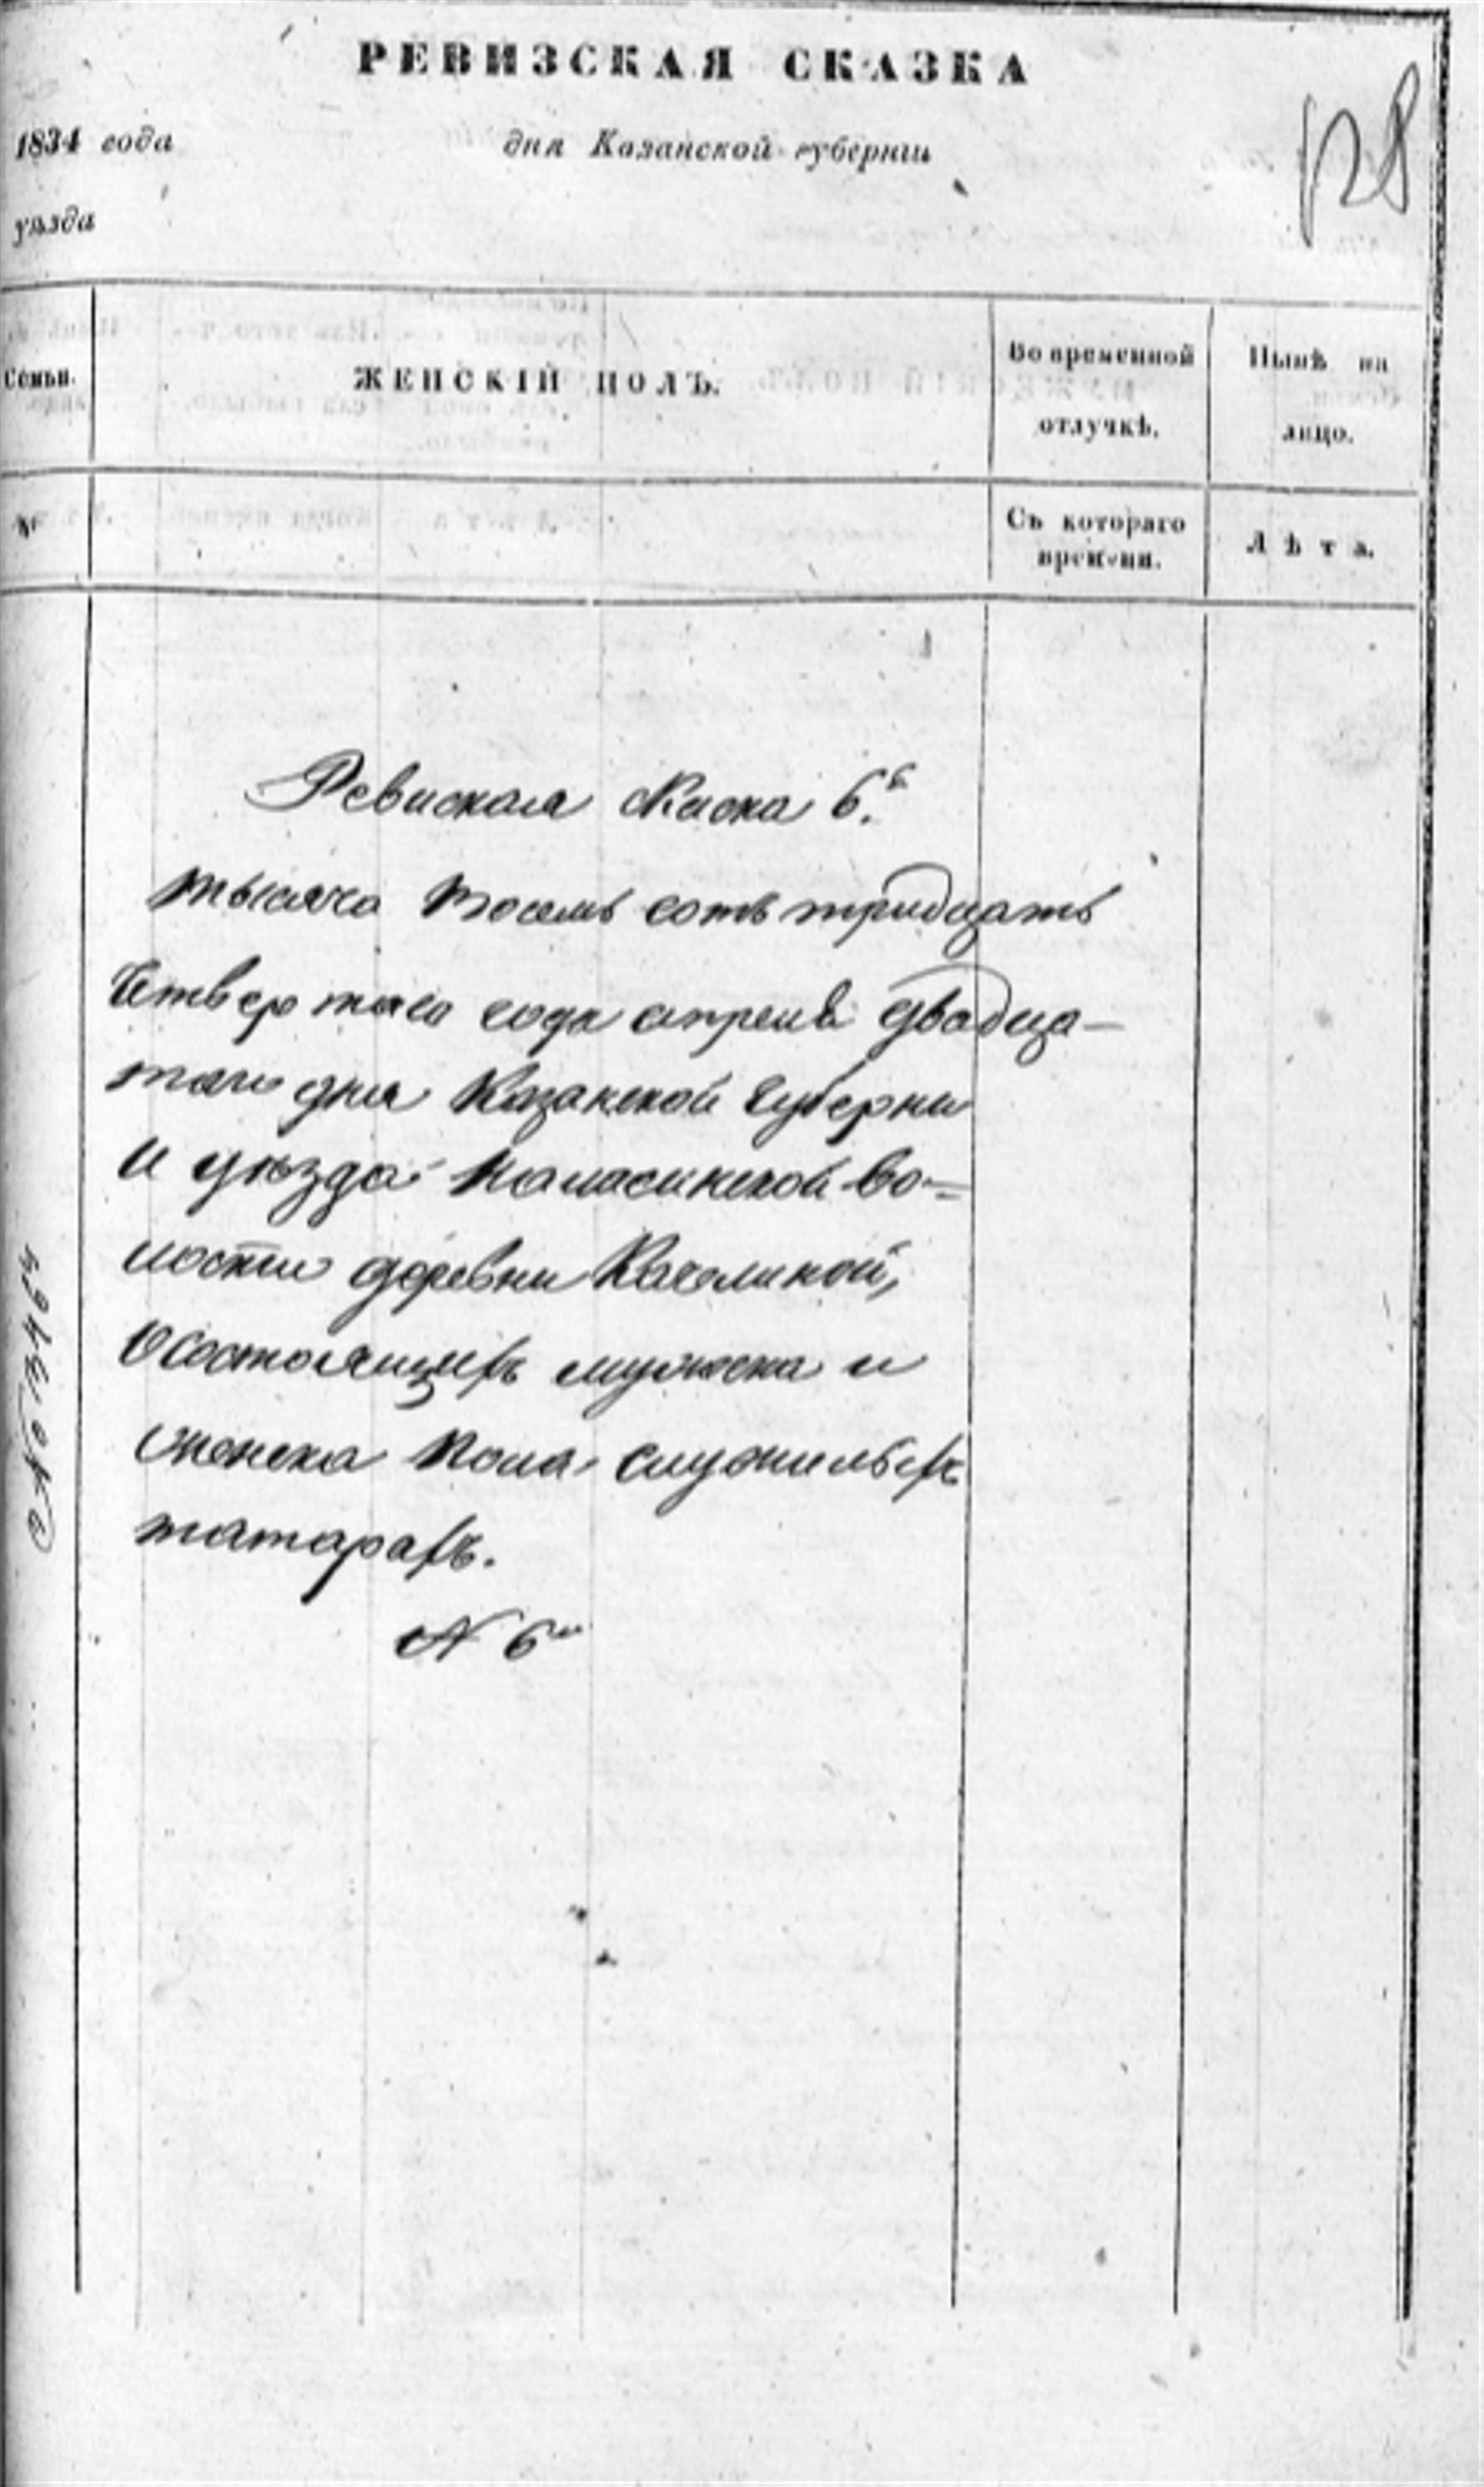 РЕВИЗСКАЯ СКАЗКА
128
1834 года дня Казанской губерніи
уѣзда
Семьи. ЖЕНСКІЙ ПОЛЪ. Во временной отлучкѣ. Нынѣ на лицо.
№ Съ котораго времени. Лѣта.
Ревиская скаска 6.
тысяча восемь сотъ тридцать
четвертаго года апреля двадца-
таго дня Казанской губерни
и уѣзда Каласинской во=
лости деревни
О состоящихъ мужска и
женска пола служилыхъ
татарахъ.
N 6